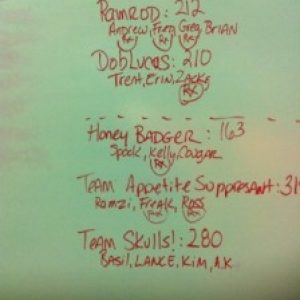 Ramrod: 212
Andrew, Fred, Greg, BRIAN
Rx Rx Rx
DobLucas: 210
Trent, Erin, Zack
Rx
Honey BADGER: 163
Spock, Kelly, Cougar
Rx
TEAM Appetite Suppresant: 31
Ramzi, Freak, Ross
Rx Rx
TEAM SKULLS!: 280
BASIL, LANCE, KIM, A.K